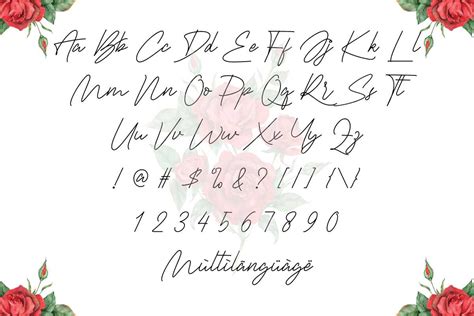 Aa Bb Cc Dd Ee Ff Jj Kk Ll
Mm Nn Oo Pp Qq Rr Ss Tt
Uu Vv Ww Xx Yy Zz
! @ # $ % & ? [ ] { \ }
1 2 3 4 5 6 7 8 9 0
Mùltìlāngüàgē